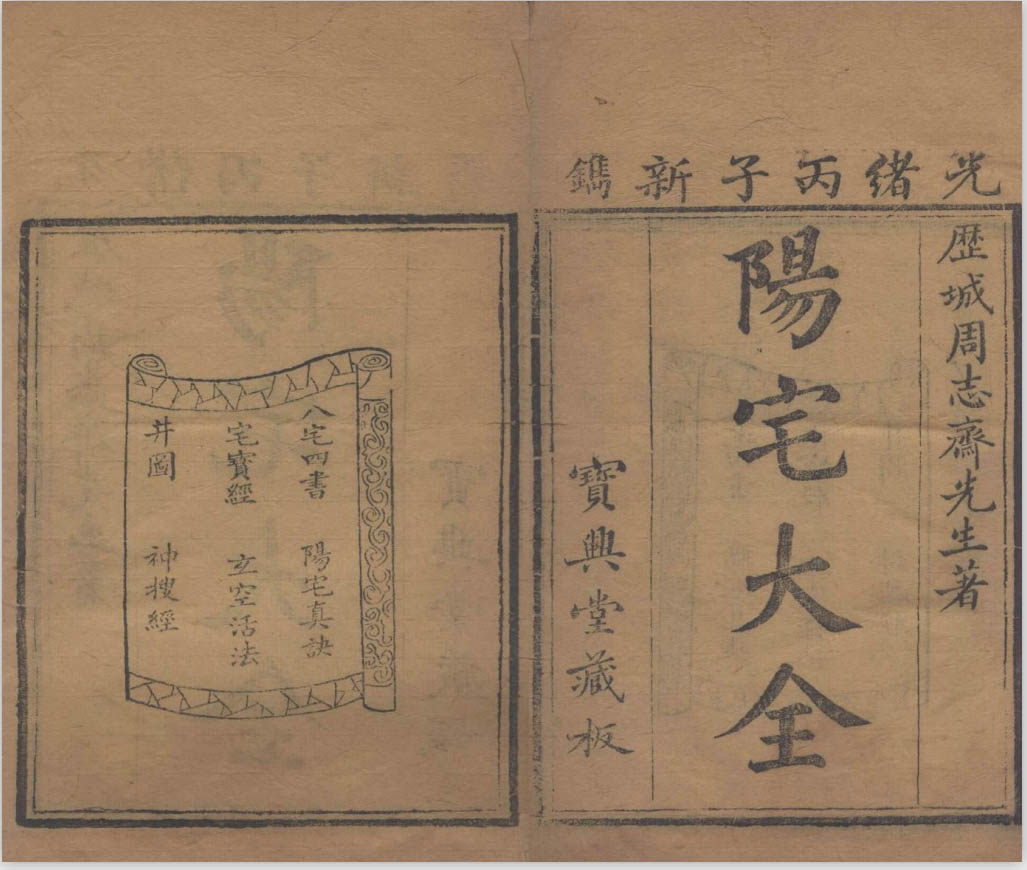 光緒丙子新鐫
歷城周志齋先生著
陽宅大全
寶興堂藏板
八宅四書 陽宅真訣
宅寶經 玄空活法
井圖 神搜經